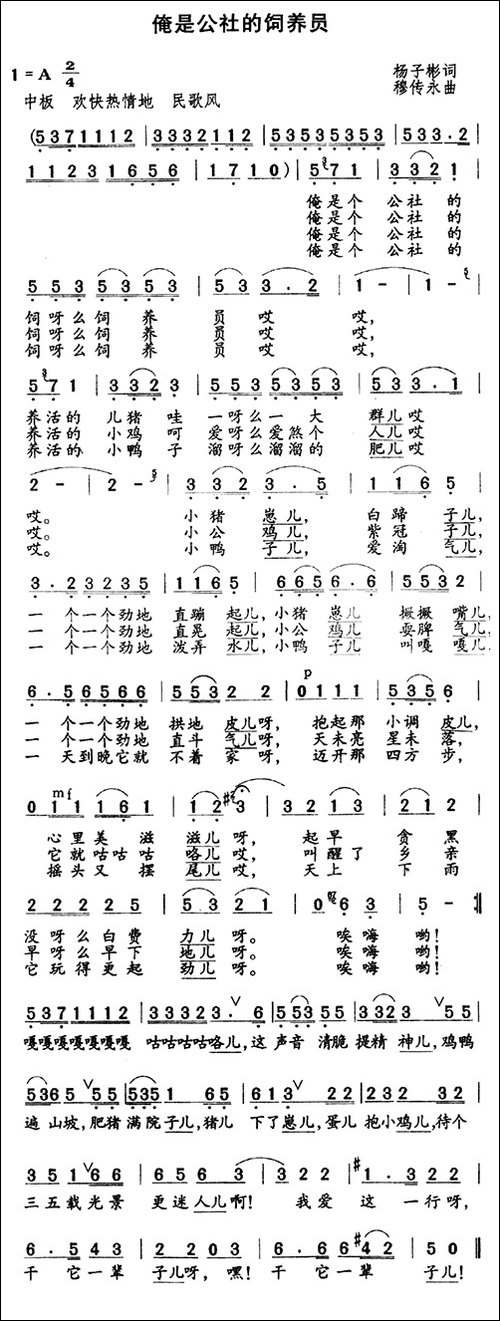 俺是公社的饲养员
1=A 2/4
杨子彬词
穆传永曲
中板 欢快热情地 民歌风
(5371112 | 3332112 | 535353535353 | 533·2 |
1123 31656 | 1710) | 571 | 3321 |
俺是个 公社的
俺是个 公社的
俺是个 公社的
553 5353 | 533·2 | 1- | 1- |
饲呀么饲 养 员哎 哎,
饲呀么饲 养 员哎 哎,
饲呀么饲 养 员哎 哎,
571 | 3323 | 553 5353 | 533·1 |
养活的 儿猪 哇 一呀么一 大 群儿哎
养活的 小鸡 呵 爱呀么爱煞个 人儿哎
养活的 小鸭 子 溜呀么溜溜的 肥儿哎
2- | 2- | 332 | 3·5 | 1165 |
哎。 小猪 崽儿, 白蹄 子儿,
哎。 小公 鸡儿, 紫冠 子儿,
哎。 小鸭 子儿, 爱淘 气儿,
3·23235 | 1165 | 66656·6 | 5532 |
一 个一个劲地 直蹦 起儿,小猪 崽儿 撅撅 嘴儿,
一 个一个劲地 直晃 起儿,小公 鸡儿 耍脾 气儿,
一 个一个劲地 泼弄 水儿,小鸭 子儿 叫嘎 嘎儿,
p
6·56566 | 55322 | 0111 | 5356 |
一 个一个劲地 拱地 皮儿呀, 抱起那 小调 皮儿,
一 个一个劲地 直斗 气儿呀, 天未亮 星未 落,
一 天到晚它就 不着 家呀, 迈开那 四方 步,
mf
011 161 | 12#3 | 3213 | 212 |
心里美 滋 滋儿呀, 起早 贪黑
它就咕咕咕 咯儿哎, 叫醒了 乡亲
摇头又 摆 尾儿哎, 天上 下雨
22225 | 5321 | 063 | 5- :‖
没呀么白费 力儿呀。 唉嗨 哟!
早呀么早下 地儿呀。 唉嗨 哟!
它玩得更起 劲儿呀。 唉嗨 哟!
5371112 | 33323∨3·6 | 55355 | 3323∨55 |
嘎嘎嘎嘎嘎嘎嘎 咕咕咕咕咯儿,这 声音 清脆 提精 神儿,鸡鸭
5365∨55 | 535165 | 613∨22 | 23232 |
遍 山坡,肥猪 满院 子儿,猪儿 下了崽儿,蛋儿 抱小鸡儿,待个
351∨66 | 6563 | 322 | #1·322 |
三五载光景 更迷人儿啊! 我爱 这 一行呀,
6·543 | 2203 | 6·66#42 | 50 ‖
干 它一辈 子儿呀,嘿! 干 它一辈 子儿!